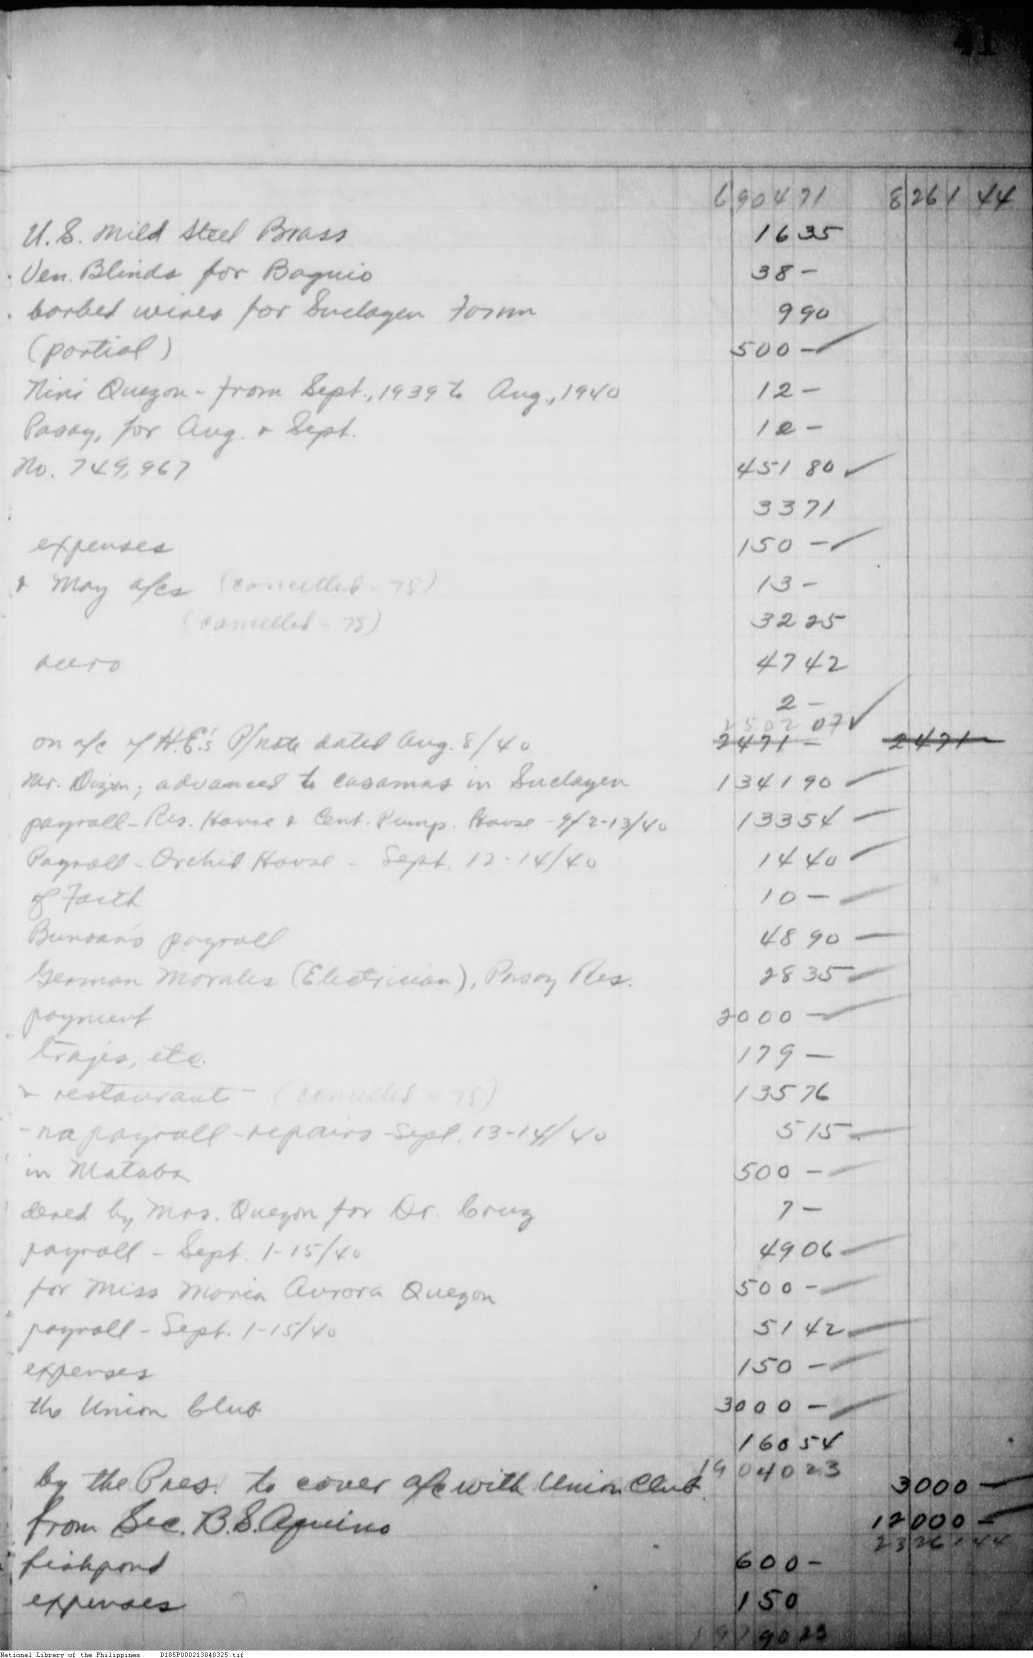 41
6904 71 8261 44
U.S. Mild Steel Brass 16 35
Ven. Blinds for Baguio 38 -
barbed wires for Suclayen Farm 9 90
(partial) 500 -
Nini Quezon - from Sept., 1939 to Aug., 1940 12 -
Pasay, for Aug. & Sept. 12 -
No. 749,967 451 80
33 71
expenses 150 -
& May a/cs (cancelled - 75) 13 -
(cancelled - 75) 32 25
47 42
2 -
2502 07
on a/c of H.E.'s P/note dated Aug. 8/40 2471 - 2471
Mr. Dizon; advanced to casamas in Suclayen 1341 90
payroll - Res. House & Cent. Pump. House - 9/2-13/40 133 54
Payroll - Orchid House - Sept. 12-14/40 14 40
of Faith 10 -
Bunoan's payroll 48 90
German Morales (Electrician), Pasay Res. 28 35
payment 2000 -
trajes, etc. 179 -
& restaurant - (cancelled - 75) 135 76
-na payroll - repairs - Sept. 13-14/40 5 15
in Matabo 500 -
dered by Mrs. Quezon for Dr. Cruz 7 -
payroll - Sept. 1-15/40 49 06
for Miss Maria Aurora Quezon 500 -
payroll - Sept. 1-15/40 51 42
expenses 150 -
the Union Club 3000 -
160 54
19040 23
by the Pres. to cover a/c with Union Club 3000 -
from Sec. B.S. Aquino 12000 -
23261 44
fishpond 600 -
expenses 150
19790 23
National Library of the Philippines D185P000213840325.tif